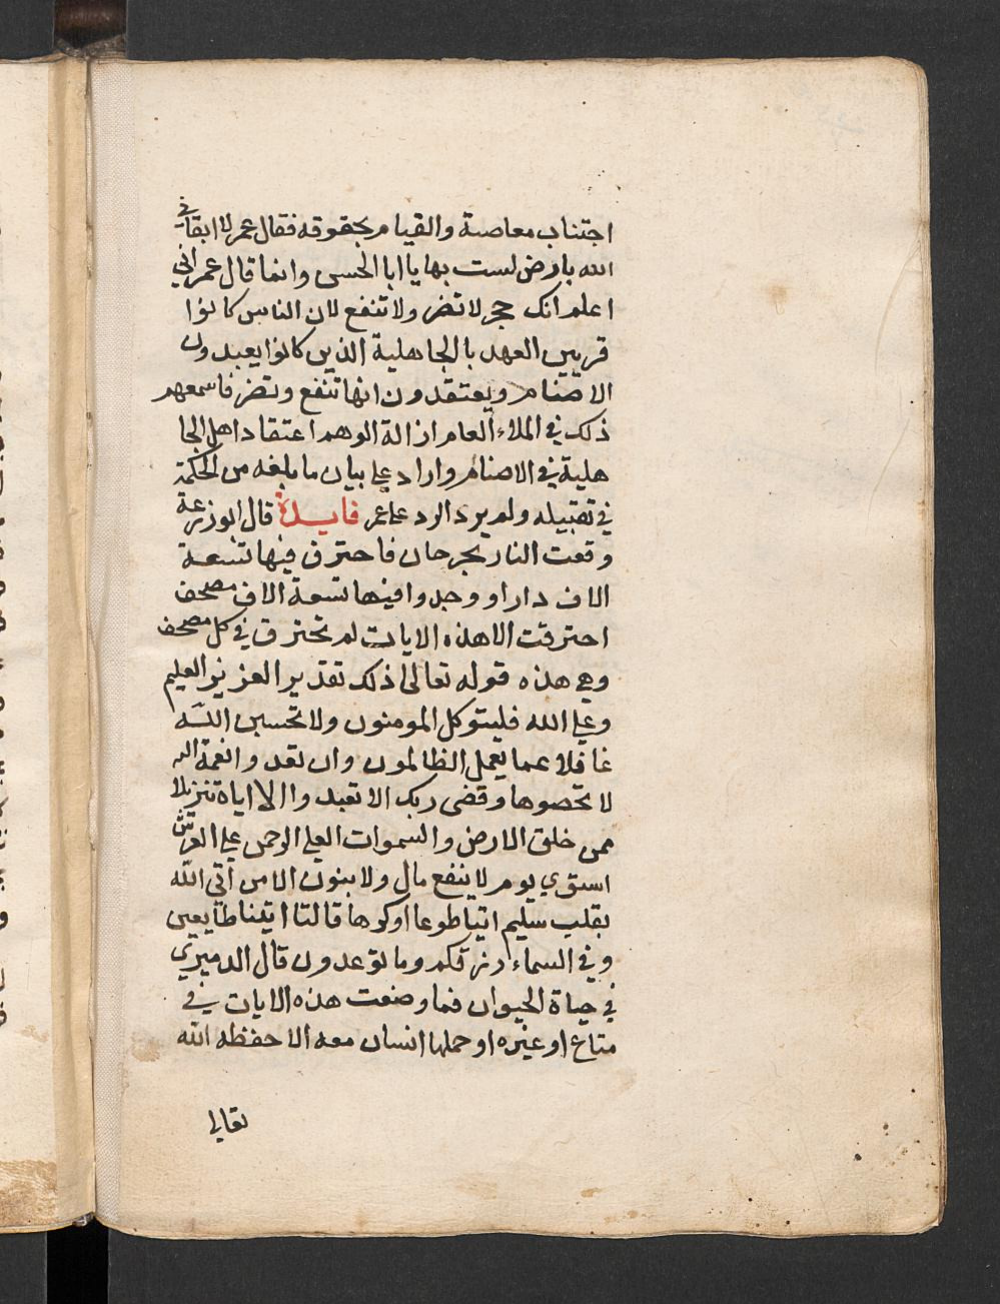 اجتناب معاصية والقيام بحقوقه فقال عمر لا ابقاني
الله بارض لست بها يا ابا الحسن وانما قال عمر اني
اعلم انك حجر لا تضر ولا تنفع لان الناس كانوا
قريبين العهد بالجاهلية الذين كانوا يعبدون
الاصنام ويعتقدون انها تنفع وتضر فاسمعهم
ذلك في الملاء العام ازالة الوهم اعتقاد اهل الجا
هلية في الاصنام واراد علي بيان ما بلغه من الحكمة
في تقبيله ولم يرد الرد على عمر فايدة قال ابو زرعة
وقعت النار بجرجان فاحترق فيها تسعة
الاف دار او وجدوا فيها تسعة الاف مصحف
احترقت الا هذه الايات لم تحترق في كل مصحف
وهي هذه قوله تعالى ذلك تقدير العزيز العليم
وعلى الله فليتوكل المومنون ولا تحسبن الله
غافلا عما يعمل الظالمون وان تعدوا نعمة الله
لا تحصوها وقضى ربك الا تعبدوا الا اياه تنزيلا
ممن خلق الارض والسموات العلى الرحمن على العرش
استوي يوم لا ينفع مال ولا بنون الا من اتى الله
بقلب سليم اتيا طوعا او كرها قالتا اتينا طايعين
وفي السماء رزقكم وما توعدون قال الدميري
في حياة الحيوان فما وضعت هذه الايات في
متاع او غيره او حملها انسان معه الا حفظه الله
تعالى